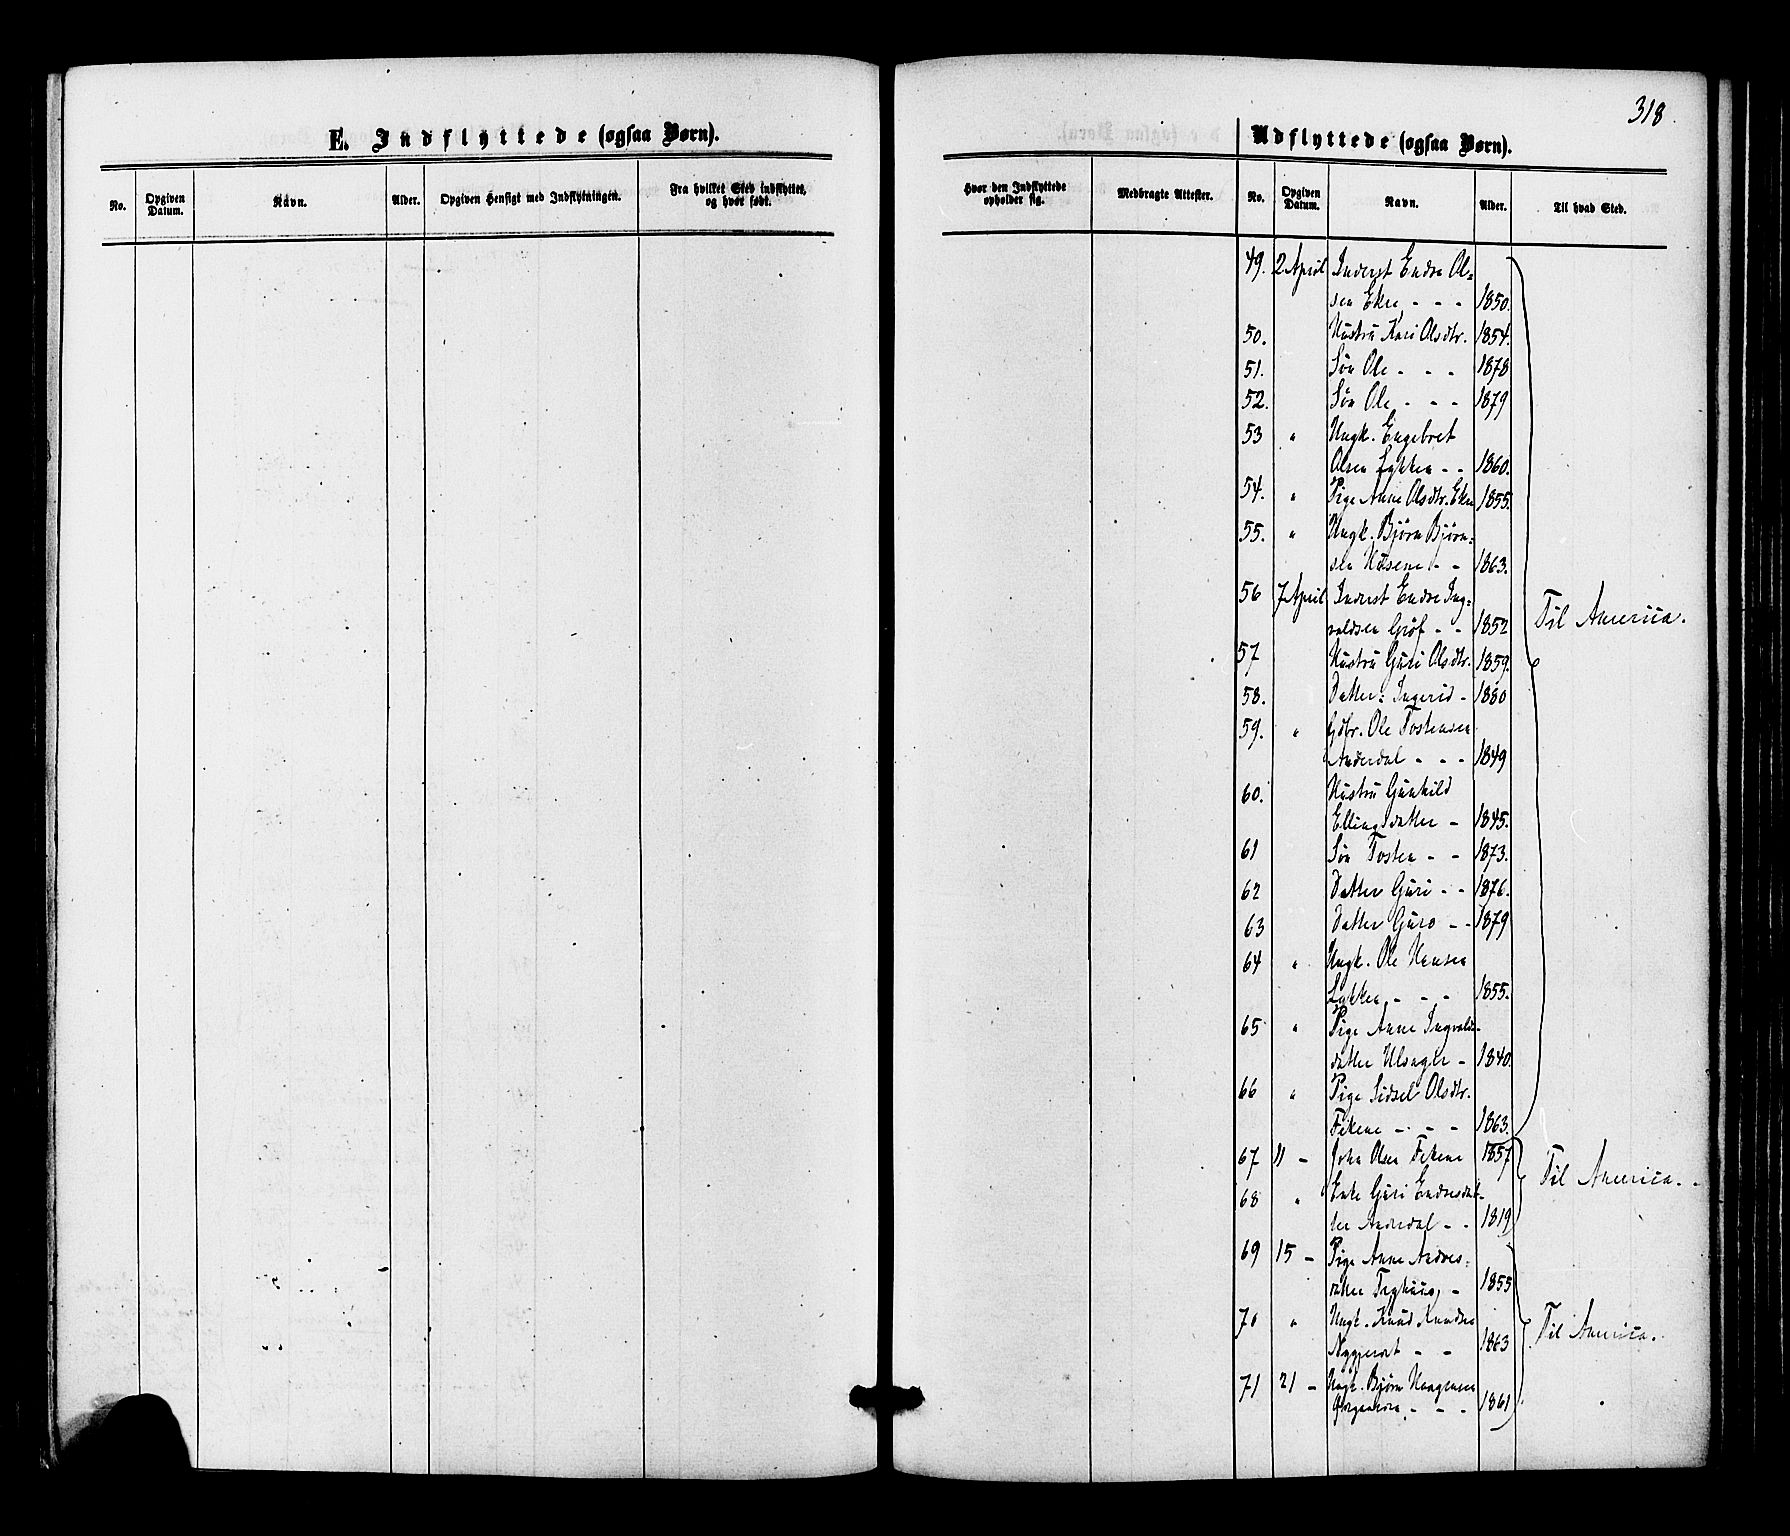 318.
E. Indflyttede (ogsaa Børn).
Udflyttede (ogsaa Børn).
No.
Opgiven Datum.
Navn.
Alder.
Opgiven Hensigt med Indflytningen.
Fra hvilket Sted indflyttet, og hvor født.
Hvor den Indflyttede opholder sig.
Medbragte Attester.
No.
Opgiven Datum.
Navn.
Alder.
Til hvad Sted.
49. 2 April Inderst Endre Ol=
sen Eken - - - 1850.
50. Hustru Kari Olsdtr. 1854.
51. Søn Ole - - - 1878
52. Søn Ole - - - 1879
53 " Ungk. Engebret
Olsen Løkken - - 1860.
54. " Pige Anne Olsdtr. Eken 1855.
55. " Ungk. Bjørn Bjørn=
sen - - 1863.
56 7 April Inderst Endre Ing=
valdsen Grøf - - 1852
Til America.
57 Hustru Guri Olsdtr. 1859.
58. Datter: Ingerid - 1880
59. " Gdbr. Ole Tostensen
Anderdal - - - 1849
60. Hustru Gunhild
Ellingsdatter - 1845.
61 Søn Tosten - - 1873.
62 Datter Guri - - 1876.
63 Datter Guro - - 1879
64 " Ungk. Ole Hansen
Løkken - - - 1855.
65 " Pige Anne Ingvalds-
datter - 1840.
66 " Pige Sidsel Olsdtr.
Fekene - - - 1863.
67 11 - John Olsen Fekene 1857
Til America. -
68 " Enke Guri Endresdat-
ter Anderdal - - 1819
69 15 - Pige Anne Andres=
datter - 1855
70 " Ungk. Knud Knudsen
- - 1863
Til America.
71 21 - Ungk. Bjørn Haagensen
- - - 1861